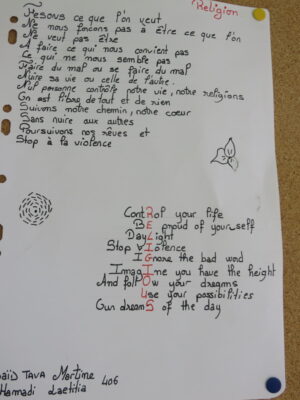 Religion
Fesons ce que l'on veut
Ne nous forçons pas à être ce que l'on
Ne veut pas être
A faire ce qui nous convient pas
Ce qui me nous semble pas
Faire du mal ou se faire du mal
Nuire sa vie ou celle de l'autre.
Nul personne contrôle notre vie, notre religions
On est libre de tout et de rien
Suivons notre chemin, notre coeur
Sans nuire aux autres
Poursuivons nos rêves et
Stop à la violence
Control of your life
Be proud of your self
Daylight
Stop violence
Ignore the bad word
Imagine you have the height
And follow your dreams
Use your possibilities
Gun dreams of the day
TAVA Martine 406
Hamadi Laetitia